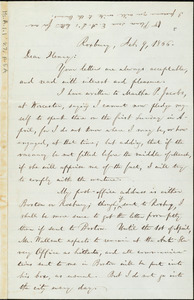 Roxbury, Feb. 9, 1866.
Dear Henry:
Your letters are always acceptable,
and read with interest and pleasure.
I have written to Martha P. Jacobs,
at Worcester, saying I cannot now pledge my-
self to speak there on the first Sunday in A-
pril, for I do not know how I may be, when
engaged, at that time; but adding, that if the
vacancy be not filled before the middle of March,
if she will apprise me of the fact, I will try to
comply with the wishes
My post-office address is either
Boston or Roxbury; though, sent to Roxbury, I
shall be more sure to get the letter promptly
than if sent to Boston. Until the 1st of April,
Mr. Wallcut expects to remain at the Anti-Sla-
very Office as hitherto, and all communica-
tions sent to me in Boston will be put into
his box, as usual. But I do not go into
the city every day.